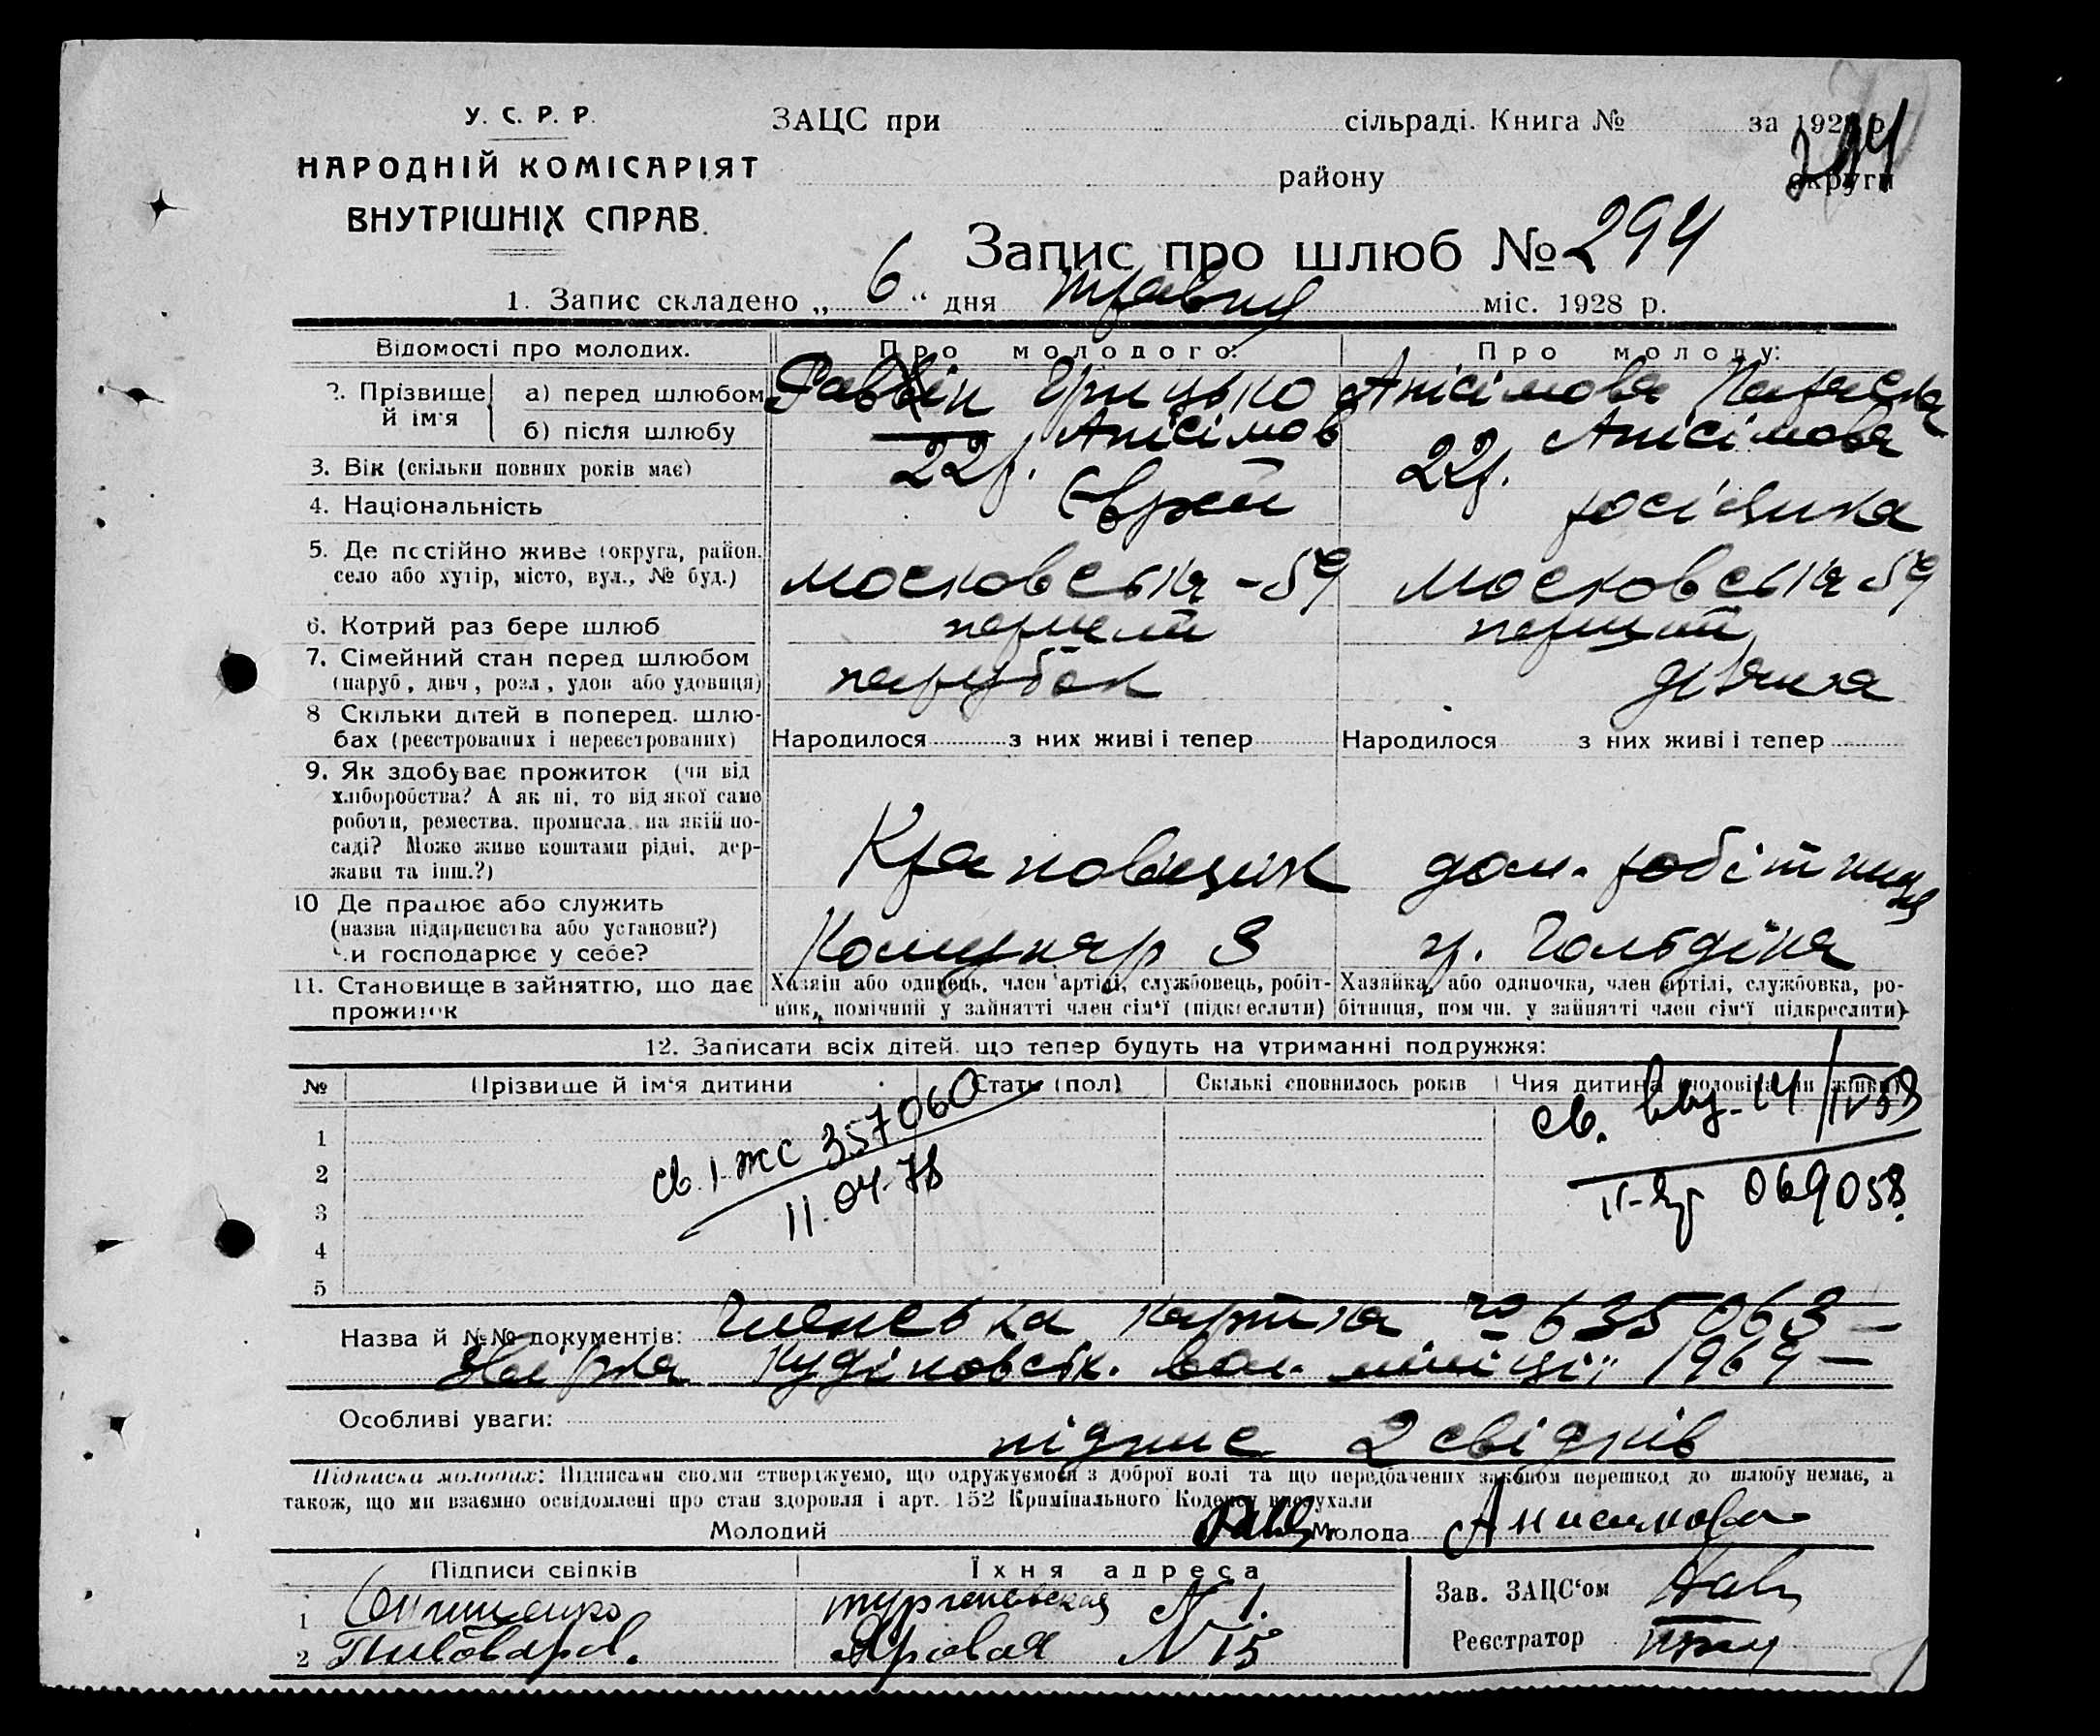 У. С. Р. Р.
НАРОДНІЙ КОМІСАРІЯТ
ВНУТРІШНІХ СПРАВ.
ЗАЦС при сільраді. Книга № за 192 р.
району округи
Запис про шлюб № 294
1. Запис складено „ 6 " дня травня міс. 1928 р.
Відомості про молодих. Про молодого: Про молоду:
2. Прізвище й ім'я
а) перед шлюбом Грицько Анісімова Параска
б) після шлюбу Анісімов Анісімова
3. Вік (скільки повних років має) 22 р. 22 р.
4. Національність Єврей росіянка
5. Де постійно живе (округа, район,
село або хутір, місто, вул., № буд.) Московська - 59 Московська 59
6. Котрий раз бере шлюб перший перший
7. Сімейний стан перед шлюбом
(паруб., дівч., розл., удов. або удовиця) парубок дівчина
8 Скільки дітей в поперед. шлю-
бах (реєстрованих і нереєстрованих) Народилося з них живі і тепер Народилося з них живі і тепер
9. Як здобуває прожиток (чи від
хліборобства? А як ні, то від якої саме
роботи, ремества, промисла, на якій по-
саді? Може живе коштами рідні, дер-
жави та інш.?) Крановщик дом. робітниця
10 Де працює або служить
(назва підприємства або установи?)
Чи господарює у себе? Комунар З гр. Гольдіна
11. Становище в зайняттю, що дає
прожиток
Хазяїн або одинець, член артілі, службовець, робіт-
ник, помічний у зайнятті член сім'ї (підкреслити)
Хазяйка, або одиночка, член артілі, службовка, ро-
бітниця, помічн. у зайнятті член сім'ї підкреслити)
12. Записати всіх дітей, що тепер будуть на утриманні подружжя:
№ Прізвище й ім'я дитини Стать (пол) Скількі сповнилось років Чия дитина (чоловіка чи жінки)
1
2
3
4
5
св. I-ЖС 357060
11.04.78
св. выд. 14/IV 53
069058
Назва й №№ документів: Членська картка № 635063 —
1969 —
Особливі уваги: підпис 2 свідків
Підписка молодих: Підписами своїми стверджуємо, що одружуємося з доброї волі та що передбачених законом перешкод до шлюбу немає, а
також, що ми взаємно освідомлені про стан здоровля і арт. 152 Кримінального Кодексу вислухали
Молодий Молода Анисимова
Підписи свідків Їхня адреса
1 Тургеневская N 1.
2 Пивоваров. Яровая N 15
Зав. ЗАЦС'ом
Реєстратор